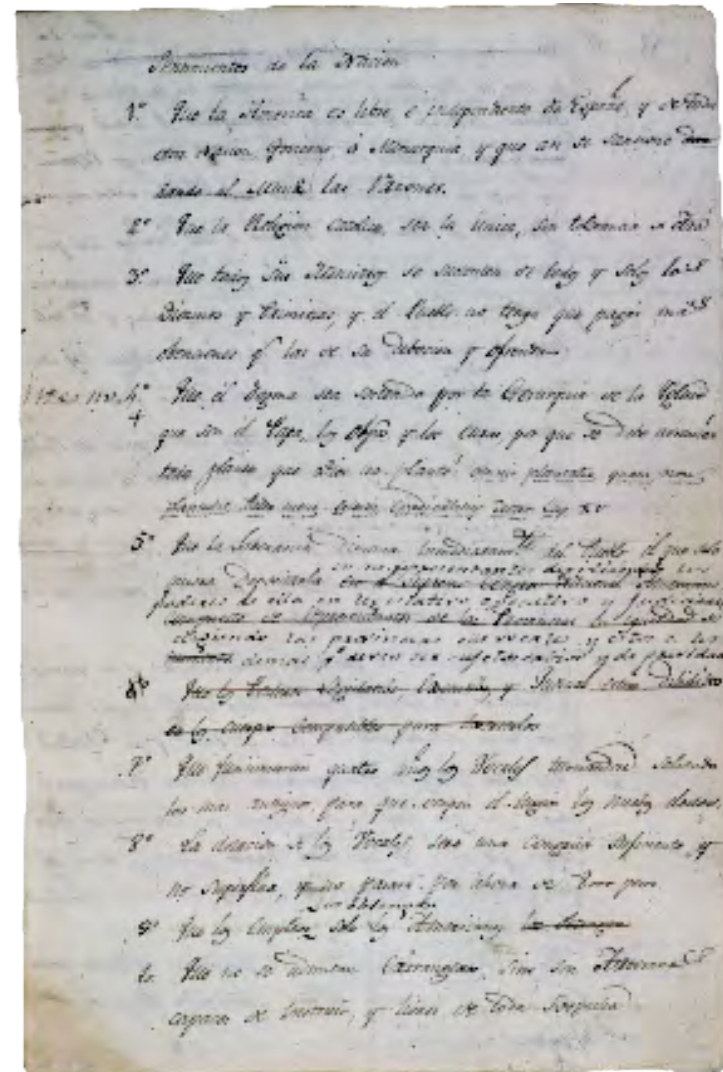 Sentimientos de la Nacion
1º Que la America es libre, e independiente de España, y de toda
otra Nacion, Govierno, ó Monarquia, y que asi se sancione dan
dando al Mundo las razones.
2º Que la Religion Catolica, sea la unica, sin tolerancia de otra
3º Que todos sus Ministros se sustenten de todos y solos los
Diezmos y Primicias, y el Pueblo no tenga que pagar mas
obenciones qe las de su debocion y ofrenda
4º Que el Dogma sea sostenido por la Gerarquia de la Iglesia
que son el Papa, los Obispos y los Curas, por que se debe arrancar
toda planta que Dios no plantó: omnis plantatio quam non
plantavit Pater meus Celestis eradicabitur Cap XV
5º Que la Soberania Dimana inmediatamte del Pueblo, el que solo
quiere Depositarla en sus representantes dividiendo los
poderes de ella en Legislativo executivo y Judiciario
eligiendo las provincias sus vocales, y estos a los
demas qe deven ser sujetos savios y de providad
en los cuerpos compatibles para exercerlos
7º Que funcionaran quatro años los Vocales turnandose saliendo
los mas antiguos para que ocupen el lugar los nuebos electos.
8º La dotacion de los Vocales, sera una congrua suficiente, y
no superflua, y no pasará por ahora de 8000 pesos
9º Que los Empleos solo los Americanos los obtengan
10. Que no se admitan Extrangeros, sino son Artesanos
capaces de instruir, y libres de toda sospecha